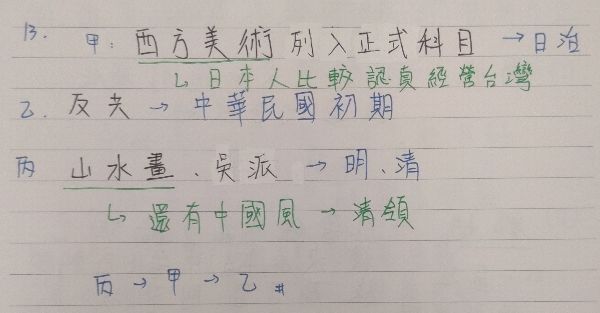 13. 甲: 西方美術列入正式科目 → 日治
↳ 日本人比較認真經營台灣
乙. 反共 → 中華民國初期
丙 山水畫、吳派 → 明、清
↳ 還有中國風 → 清領
丙 → 甲 → 乙 #